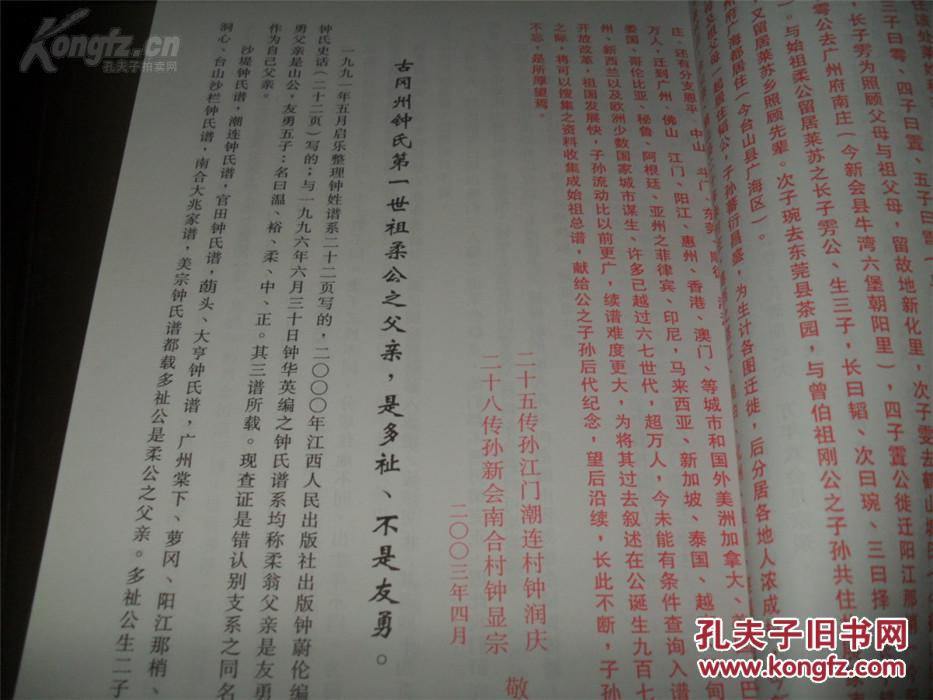 住该处
三子曰雩、四子曰霻、五子曰
三子雱为照顾父母与祖父母，留故地新化里，次子雯
零公去广州府南庄（今新会县牛湾六堡朝阳里），四子霻公徙迁阳江那
）。与始祖柔公留居莱苏之长子雱公、生三子，长曰韬、次曰琬、三曰择
又留居莱苏乡照顾先辈。次子琬去东莞县茶园，与曾伯祖刚公之子孙共住
府海都居住（今台山县广海区）。
子孙蕃衍昌盛，为生计各图迁徙，后分居各地人浓成
庄、还有分支恩平、中山、斗门、东莞、顺德
万人、迁到广州、佛山、江门、阳江、惠州、香港、澳门、等城市和国外美洲加拿大、
委国、哥伦比亚、秘鲁、阿根廷、亚州之菲律宾、印尼，马来西亚、新加坡、泰国、越
州、新西兰以及欧洲少数国家城市谋生、许多已越过六七世代，超万人，今未能有条件查询入谱
开放改革，祖国发展快，子孙流动比以前更广，续谱难度更大，为将其过去叙述在公诞生九百七
之际，将可以搜集之资料收集成始祖总谱，献给公之子孙后代纪念，望后沿续，长此不断，子孙
不忘，是所厚望焉。
二十五传孙江门潮连村钟润庆
二十八传孙新会南合村钟显宗
敬
二〇〇三年四月
古冈州钟氏第一世祖柔公之父亲，是多祉、不是友勇。
一九九一年五月启乐整理钟姓谱系二十二页写的，二〇〇〇年江西人民出版社出版钟蔚伦编
钟氏史话（二十二页）写的；与一九九六年六月三十日钟华英编之钟氏谱系均称柔翁父亲是友勇
勇父亲是山公，友勇五子：名曰温、裕、柔、中、正。其三谱所载。现查证是错认别支系之同名
作为自己父亲。
沙堤钟氏谱，潮连钟氏谱，官田钟氏谱，萠头、大亨钟氏谱，广州棠下、萝冈、阳江那梢、
洞心、台山沙栏钟氏谱，南合大兆家谱，美宗钟氏谱都载多祉公是柔公之父亲。多祉公生二子
Kongfz.cn
孔夫子拍卖网
孔夫子旧书网
www.kongfz.com